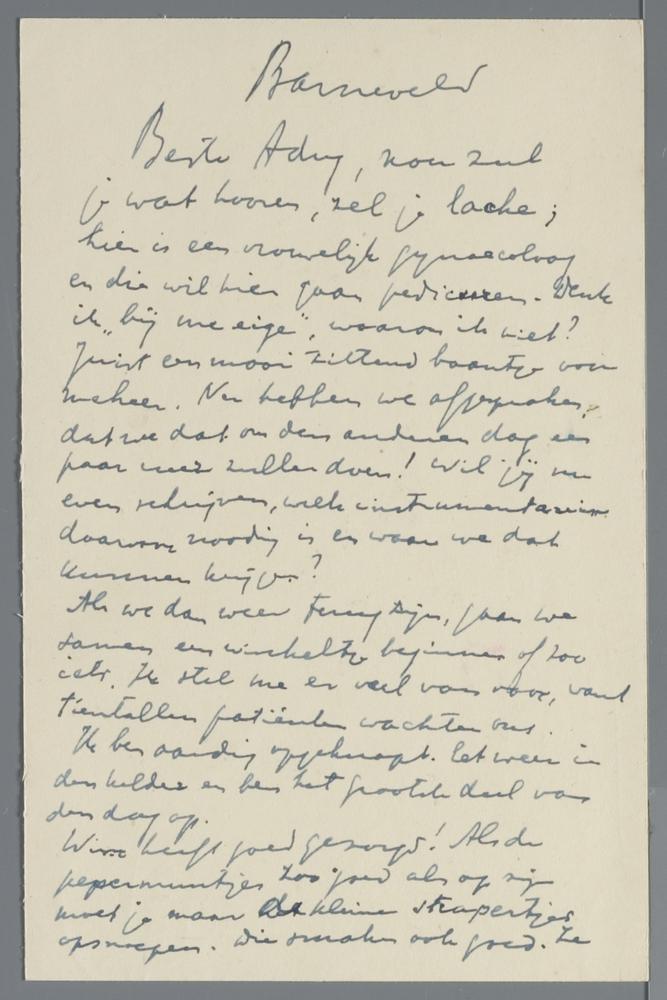 Barneveld
Beste Adry, nou zul
je wat hooren, zel je lache;
hier is een vrouwelijk gynaecoloog
en die wil hier gaan pedicuren. Denk
ik „bij me eige", waarom ik niet?
Juist een mooi zittend baantje voor
meheer. Nu hebben we afgesproken,
dat we dat om den anderen dag een
paar uur zullen doen! Wil jij nu
even schrijven, welk instrumentarium
daarvoor noodig is en waar we dat
kunnen krijgen?
Als we dan weer terug zijn, gaan we
samen een winkeltje beginnen of zoo
iets. Ik stel me er veel van voor, want
tientallen patiënten wachten ons.
Ik ben aardig opgeknapt. Eet weer in
den kelder en ben het grootste deel van
den dag op.
heeft goed gezorgd! Als de
pepermuntjes zoo goed als op zijn
moet je maar de kleine
opsnoepen. Die smaken ook goed. Ze